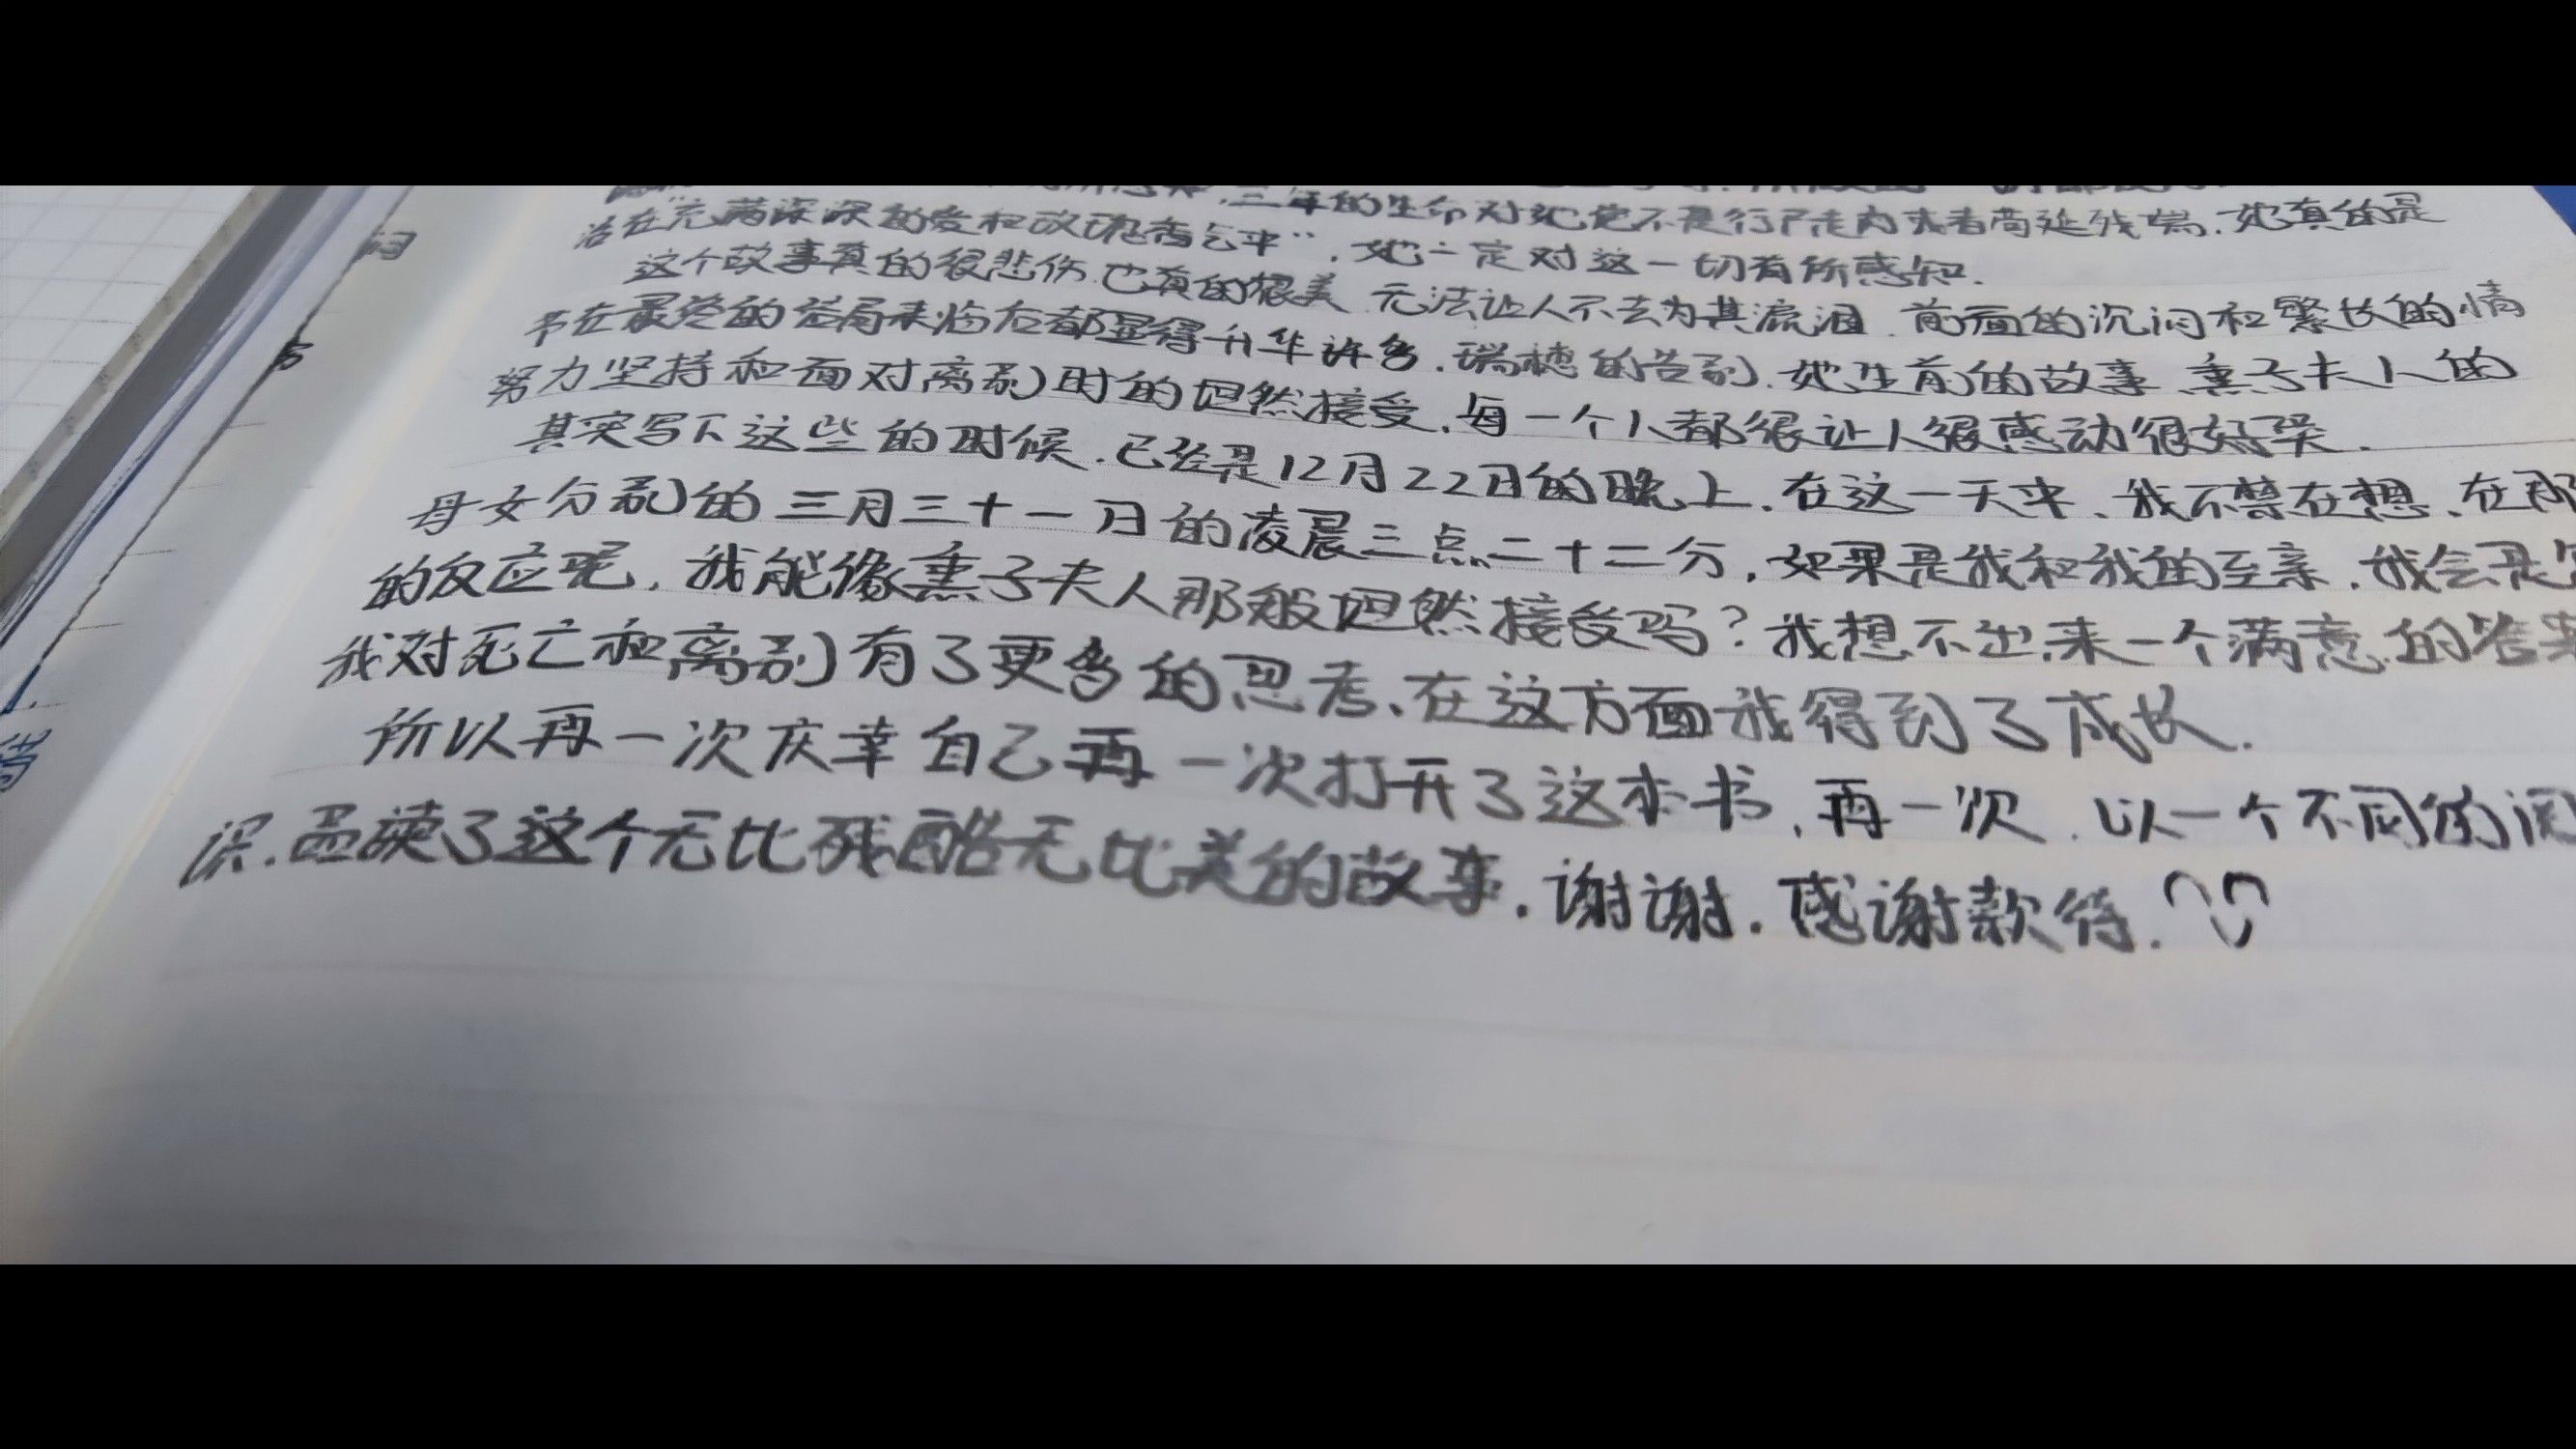 三年的生命对她绝不是行尸走肉或者苟延残喘,她真的是
活在充满深深的爱和玫瑰香气中",她一定对这一切有所感知.
这个故事真的很悲伤.也真的很美.无法让人不去为其流泪.前面的沉闷和繁长的情
节在最终的结局来临后都显得升华许多.瑞穗的告别.她生前的故事.熏子夫人的
努力坚持和面对离别时的坦然接受.每一个人都很让人很感动很好哭.
其实写下这些的时候.已经是12月22日的晚上.在这一天中、我不禁在想、在那
母女分别的三月三十一日的凌晨三点二十二分,如果是我和我的至亲.我会是
的反应呢,我能像熏子夫人那般坦然接受吗?我想不出来一个满意的答案
我对死亡和离别有了更多的思考、在这方面我得到了成长.
所以再一次庆幸自己再一次打开了这本书,再一次.以一个不同的阅
品读了这个无比残酷无比美的故事.谢谢.感谢款待.